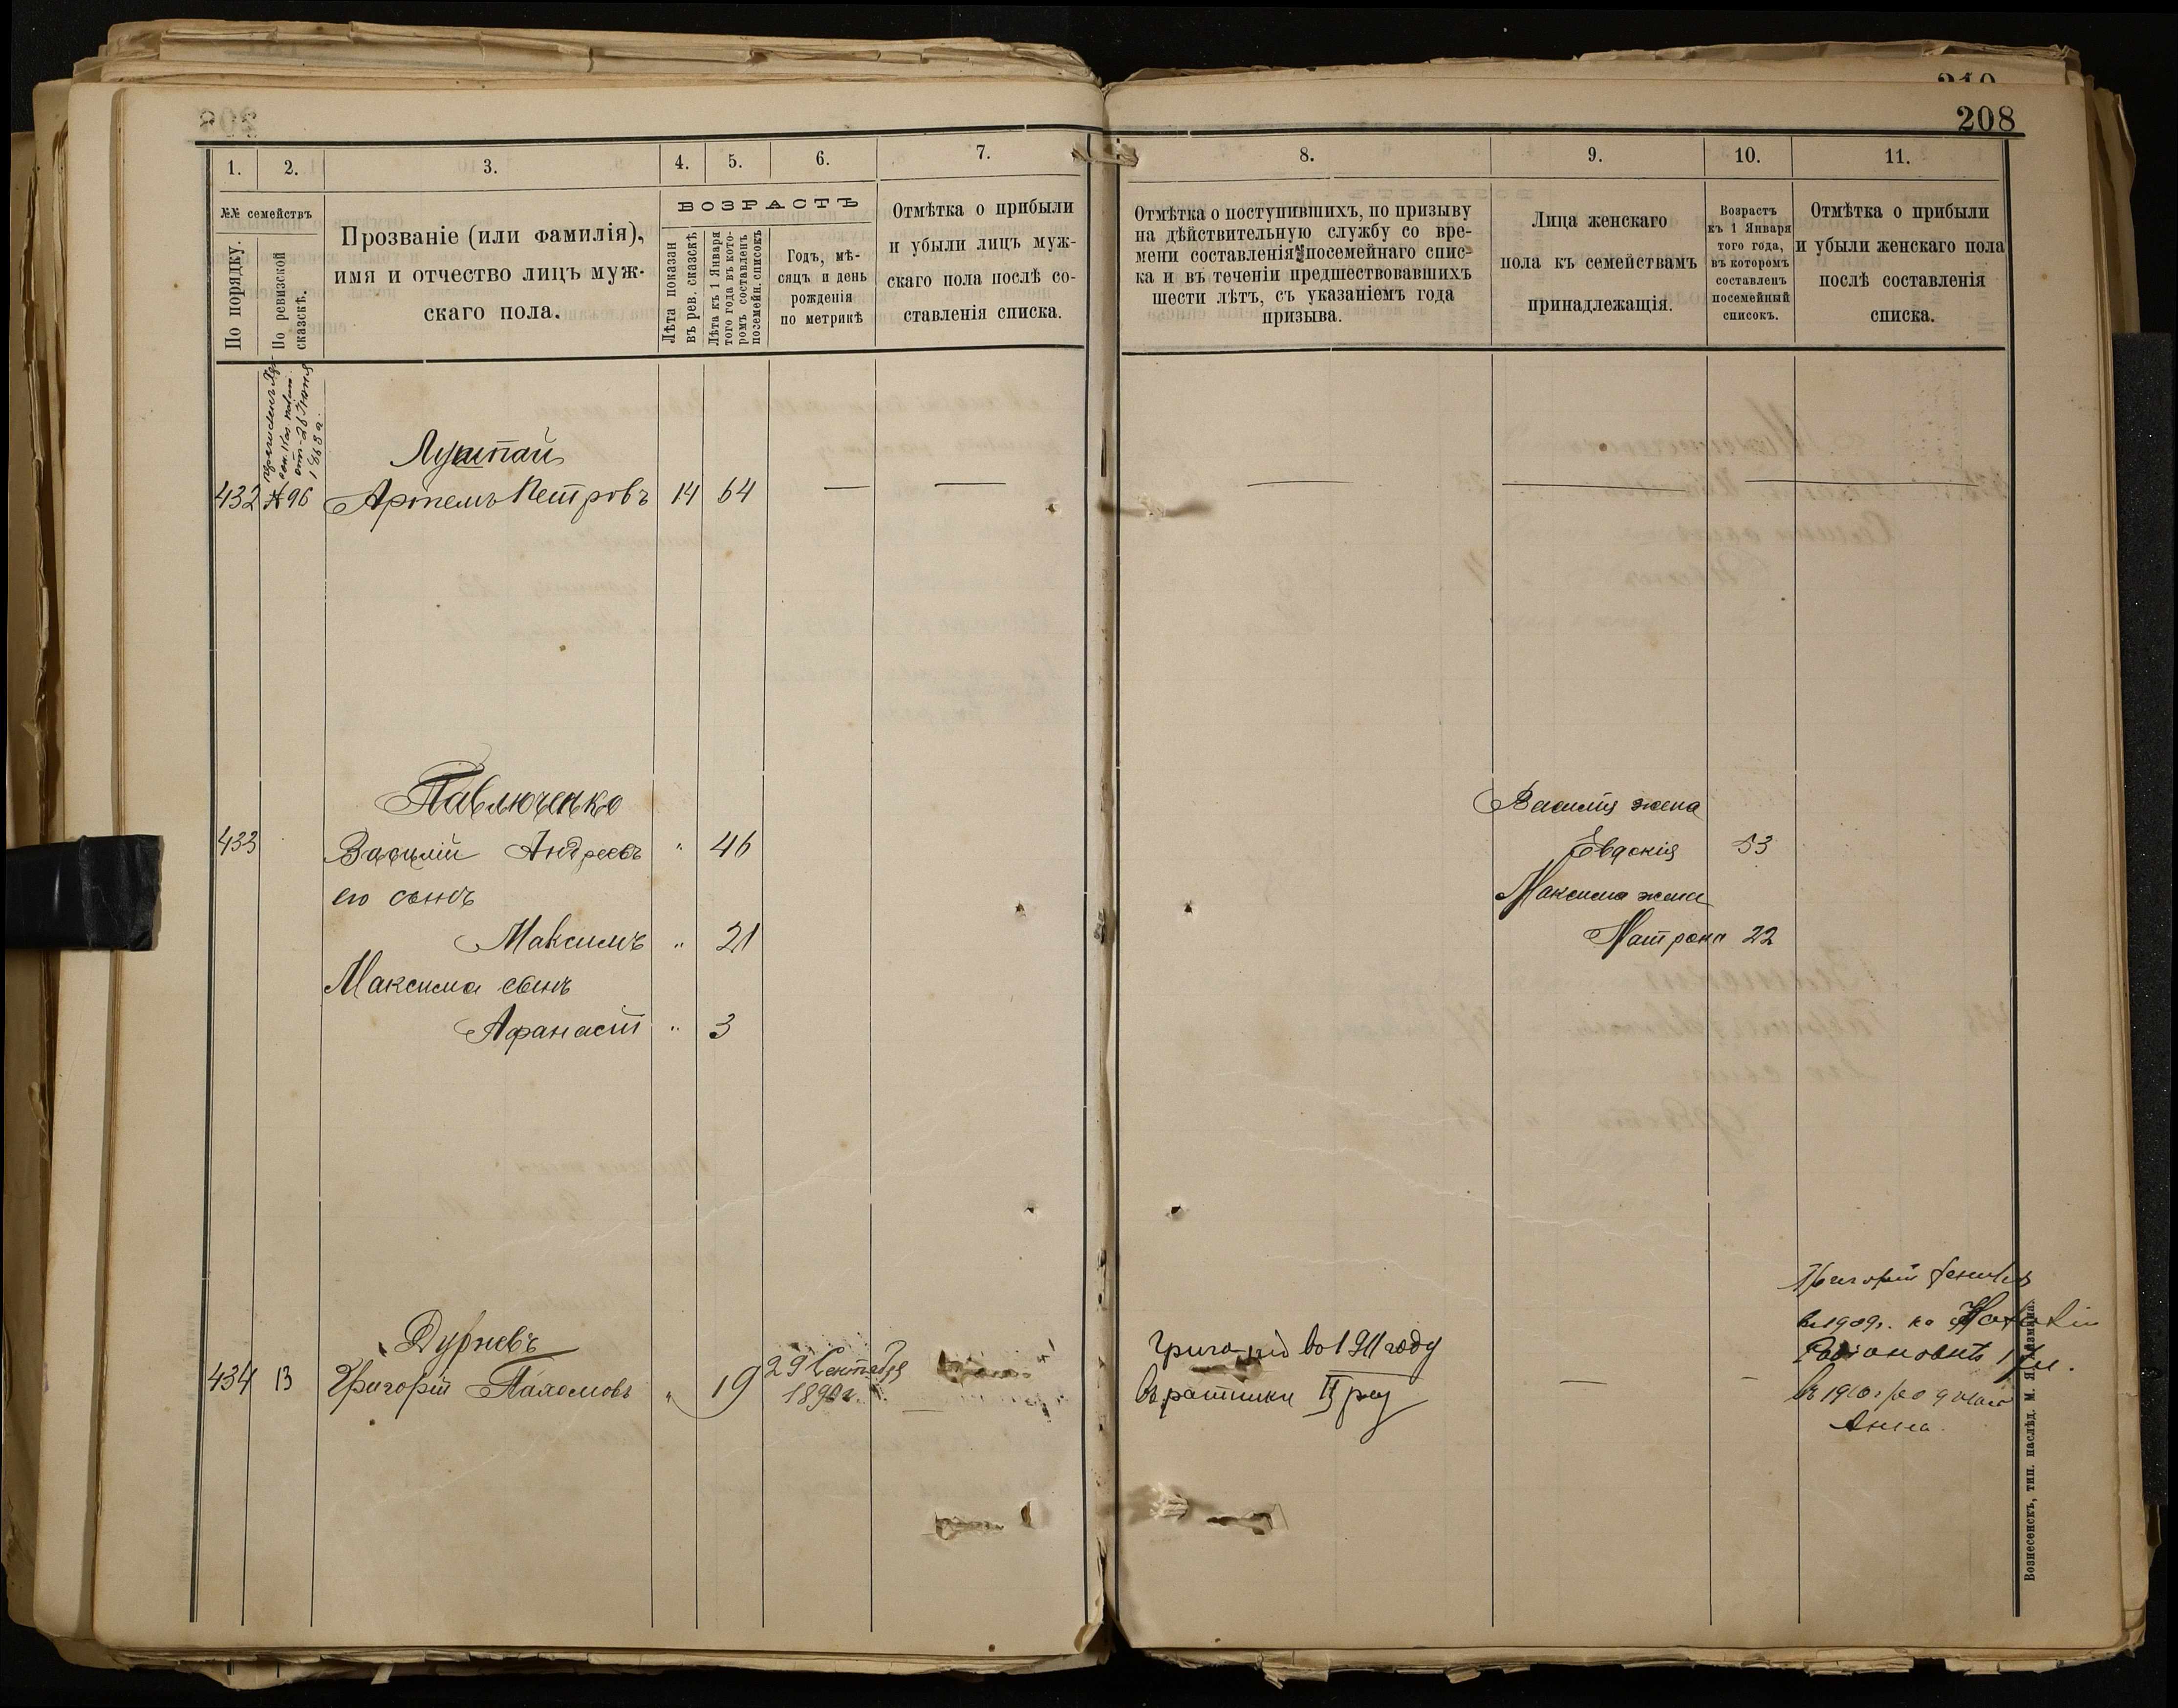 210
208
1.
2.
3.
4.
5.
6.
7.
№№ семействъ
По порядку.
По ревизской сказскѣ.
Прозваніе (или фамилія),
имя и отчество лицъ муж-
скаго пола.
ВОЗРАСТЪ
Лѣта показан
въ рев. сказскѣ
Лѣта къ 1 Января
того года въ кото-
ромъ составленъ
посемейн. списокъ
Годъ, мѣ-
сяцъ и день
рожденія
по метрикѣ
Отмѣтка о прибыли
и убыли лицъ муж-
скаго пола послѣ со-
ставленія списка.
отъ 28 Іюня
1868 г.
Луштай
432 № 96 Артемъ Петровъ 14 64 — —
Павлюченко
433 Василій Андреевъ " 46
его сынъ
Максимъ " 21
Максима сынъ
Афанасій " 3
Дурневъ
434 13 Григорій Пахомовъ " 19 29 Сентября
1890 г.
8.
9.
10.
11.
Отмѣтка о поступившихъ, по призыву
на дѣйствительную службу со вре-
мени составленія посемейнаго спис-
ка и въ теченіи предшествовавшихъ
шести лѣтъ, съ указаніемъ года
призыва.
Лица женскаго
пола къ семействамъ
принадлежащія.
Возрастъ
къ 1 Января
того года,
въ которомъ
составленъ
посемейный
списокъ.
Отмѣтка о прибыли
и убыли женскаго пола
послѣ составленія
списка.
— — —
Василія жена
Евдокія 53
Максима жена
Матрона 22
Григорій во 1911 году
въ ратники II раз
— —
Григорій женился
въ 1909 г. на
въ 1910 г родилась
Анна
Вознесенскъ, тип. наслѣд. М. Я.